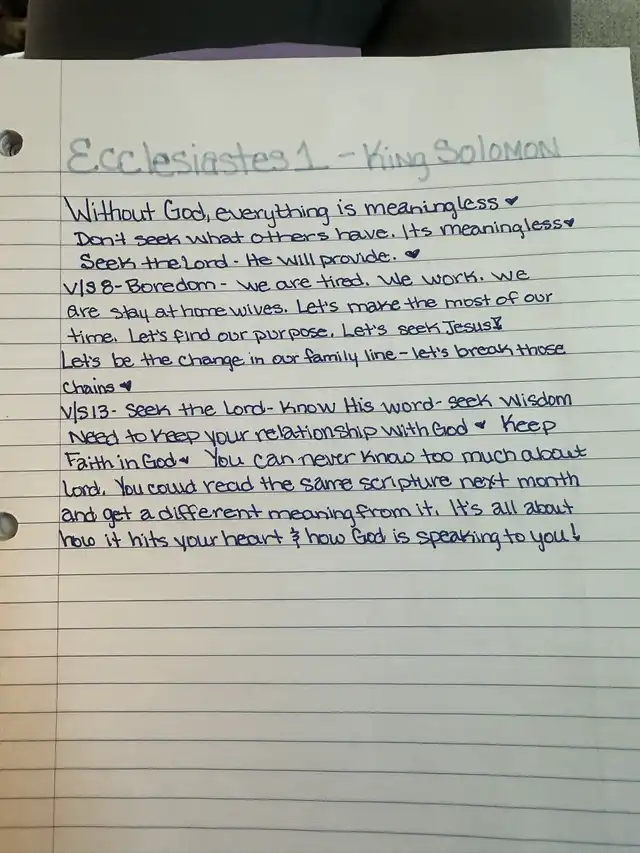 Ecclesiastes 1 - King SOLOMON
Without God, everything is meaningless ♥
Don't seek what others have. Its meaningless♥
Seek the Lord - He will provide. ♥
V/S 8 - Boredom - we are tired. We work. We
are stay at home wives. Let's make the most of our
time. Let's find our purpose. Let's seek Jesus!
Let's be the change in our family line - let's break those
Chains ♥
V/S 13 - Seek the Lord - Know His word - seek wisdom
Need to keep your relationship with God ♥ Keep
Faith in God ♥ You can never know too much about
Lord. You could read the same scripture next month
and get a different meaning from it. It's all about
how it hits your heart & how God is speaking to you!